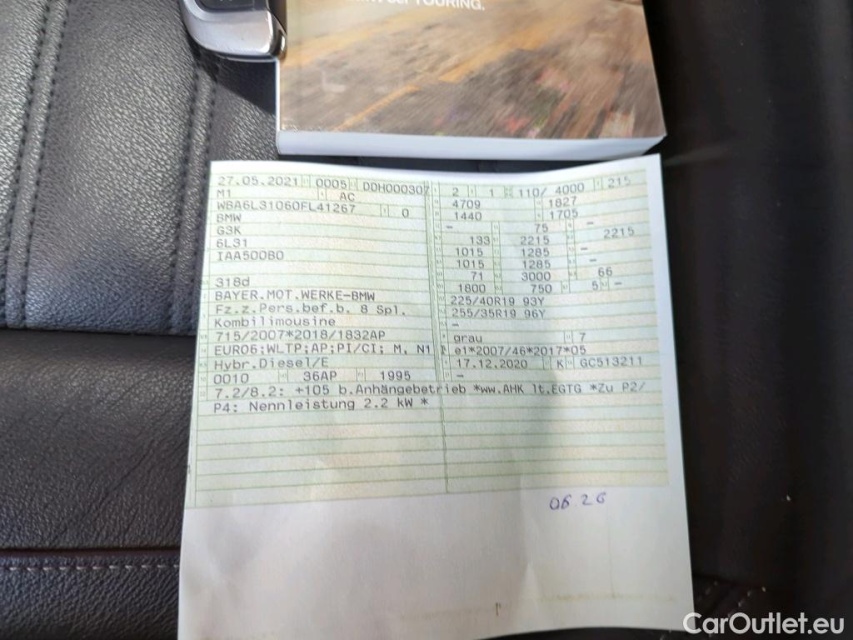 TOURING.
27.05.2021 0005 DDH000307 2 1 110/ 4000 215
M1 AC 4709 1827
WBA6L31060FL41267 0 1440 1705 -
BMW - 75 -
G3K 133 2215 2215
6L31 1015 1285 -
IAA500B0 1015 1285 -
71 3000 66
318d 1800 750 5 -
BAYER.MOT.WERKE-BMW 225/40R19 93Y
Fz.z.Pers.bef.b. 8 Spl. 255/35R19 96Y
Kombilimousine -
715/2007*2018/1832AP grau 7
EURO6;WLTP;AP;PI/CI; M, N1 e1*2007/46*2017*05
Hybr.Diesel/E 17.12.2020 K GC513211
0010 36AP 1995 -
7.2/8.2: +105 b.Anhängebetrieb *ww.AHK lt.EGTG *Zu P2/
P4: Nennleistung 2.2 kW *
06 26
CarOutlet.eu